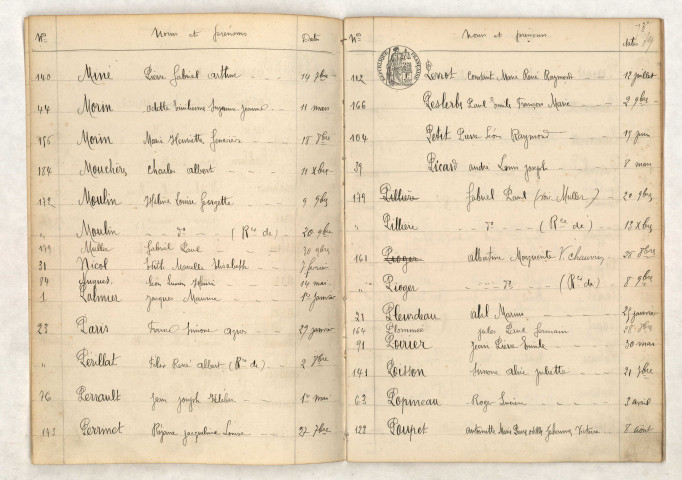 Nos Noms et prénoms Dates
140 Miné Pierre Gabriel Arthur 14 7bre
44 Morin Odette Guilhermine Suzanne Jeanne 11 mars
156 Morin Marie Henriette 18 7bre
184 Mouchère Charles Albert 11 Xbre
172 Moulin Hélène Louise Georgette 9 9bre
" Moulin do (Rce de) 20 9bre
179 Muller Gabriel Paul 20 9bre
31 Nicol Marcelle Elisabeth 7 février
84 Léon Lucien Henri 14 mai
1 Palmier Jacques Maurice 1er janvier
23 Paris Simone Agnès 29 janvier
" Périllat Félix René Albert (Rce de) 2 7bre
76 Perrault Jean Joseph 1er mai
143 Perrinet Réjane Jacqueline Louise 27 7bre
Nos Noms et prénoms dates
112 Perrot Constant Marie René Raymond 12 juillet
166 Paul Emile François Marie 2 9bre
104 Petit Pierre Léon Raymond 19 juin
39 Picard André Louis Joseph 8 mars
179 Pillière Gabriel Paul (voir Muller) 20 9bre
" Pillière do (Rce de) 13 Xbre
161 Pioger Albertine Marguerite V. 28 8bre
" Pioger do (Rce de) 8 9bre
21 Pleindeau Abel Marius 25 janvier
164 Plommée Jules René Germain 28 7bre
91 Poirier Jean Pierre Emile 30 mai
141 Poisson Simone Alice Juliette 21 7bre
63 Popineau Roger Lucien 3 avril
122 Poupet Antoinette Marie Victoire 8 août